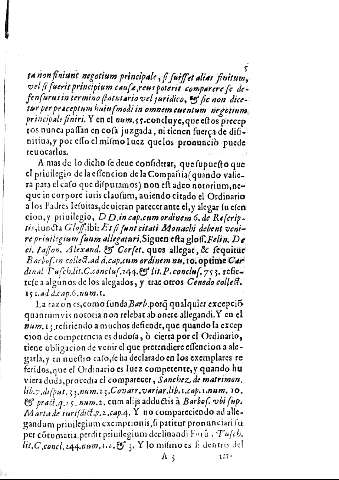 5
ta non finiunt negotium principale, si fuisset alias finitum,
vel si fuerit principium causæ, reus poterit comparere se de-
fensurus in termino statutario vel juridico, & sic non dice-
tur per præceptum huiusmodi in omnem euentum negotium
principale finiri. Y en el num. 55. concluye, que estos precep
tos nunca passan en cosa juzgada, ni tienen fuerça de difi-
nitiua, y por esso el mismo Iuez que los pronunciò puede
reuocarlos.
A mas de lo dicho se deue considerar, que supuesto que
el priuilegio de la essencion de la Compañia (quando valie-
ra para el caso que disputamos) non est adeo notorium, ne-
que in corpore iuris clausum, auiendo citado el Ordinario
a los Padres Iesuitas, deuieran parecer ante el, y alegar su essen
cion, y priuilegio, DD. in cap. cum ordinem 6. de Rescrip-
tis, iuncta Gloss. ibi: Et si sunt citati Monachi debent veni-
re priuilegium suum allegaturi. Siguen esta gloss. Felin. De
ci. Iasson. Alexand. & Corset. ques allegat, & sequitur
Barbos. in collect. ad d. cap. cum ordinem nu. 10. optime Car
dinal Tusch. lit. C. conclus. 244. & lit. P. conclus. 753. refie-
re a algunos de los alegados, y trae otros Cenedo collect.
151. ad d. cap. 6. num. 1.
La razon es, como funda Barb. porq̃ qualquier excepciõ
quantumvis notoria non relebat ab onere allegandi. Y en el
num. 13. refiriendo a muchos defiende, que quando la excep
cion de competencia es dudosa, ò cierta por el Ordinario,
tiene obligacion de venir el que pretendiere essencion a ale-
garla, y en nuestro caso, se ha declarado en los exemplares re
feridos, que el Ordinario es Iuez competente, y quando hu
viera duda, procedia el comparecer, Sanchez de matrimon.
lib. 7. disput. 33. num. 23. Couarr. variar. lib. 1. cap. 1. num. 10.
& pract. q. 25. num. 2. cum alijs adductis à Barbos. vbi sup.
Marta de iurisdict. p. 2. cap. 4. Y no compareciendo ad alle-
gandum priuilegium exemptionis, si patitur pronunciari su
per cõtumatia, perdit priuilegium declinandi Forũ. Tusch.
lit. C. concl. 244. num. 1. 2. & 3. Y lo mismo es si dentro del
A 3